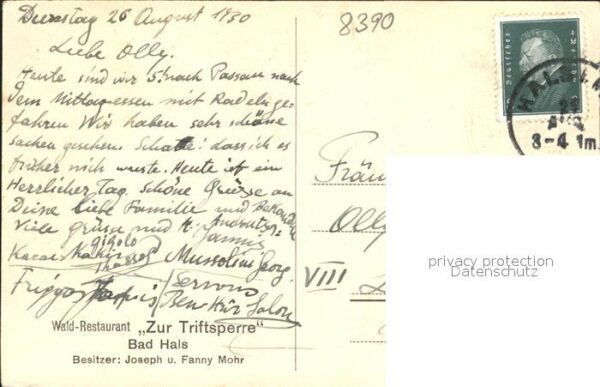 Dienstag 26 August 1930
8390
Liebe Olly.
Heute sind wir 5. nach Passau nach
dem Mittagessen mit Radeln ge-
fahren Wir haben sehr schöne
sachen gesehen. Schatte! dass ich es
früher nich wuste. Heute ist ein
Herrlicher Tag. Schöne Grüsse an
Deine liebe Familie und Bekannte
Viele grüsse und
gigolo
Mussolini Georg.
Servus
Ben Hur Salon
Wald-Restaurant „Zur Triftsperre"
Bad Hals
Besitzer: Joseph u. Fanny Mohr
Deutsches Reich
HALS
26
AUG
3-4 Nm.
Fräu
Olly
VIII
privacy protection
Datenschutz